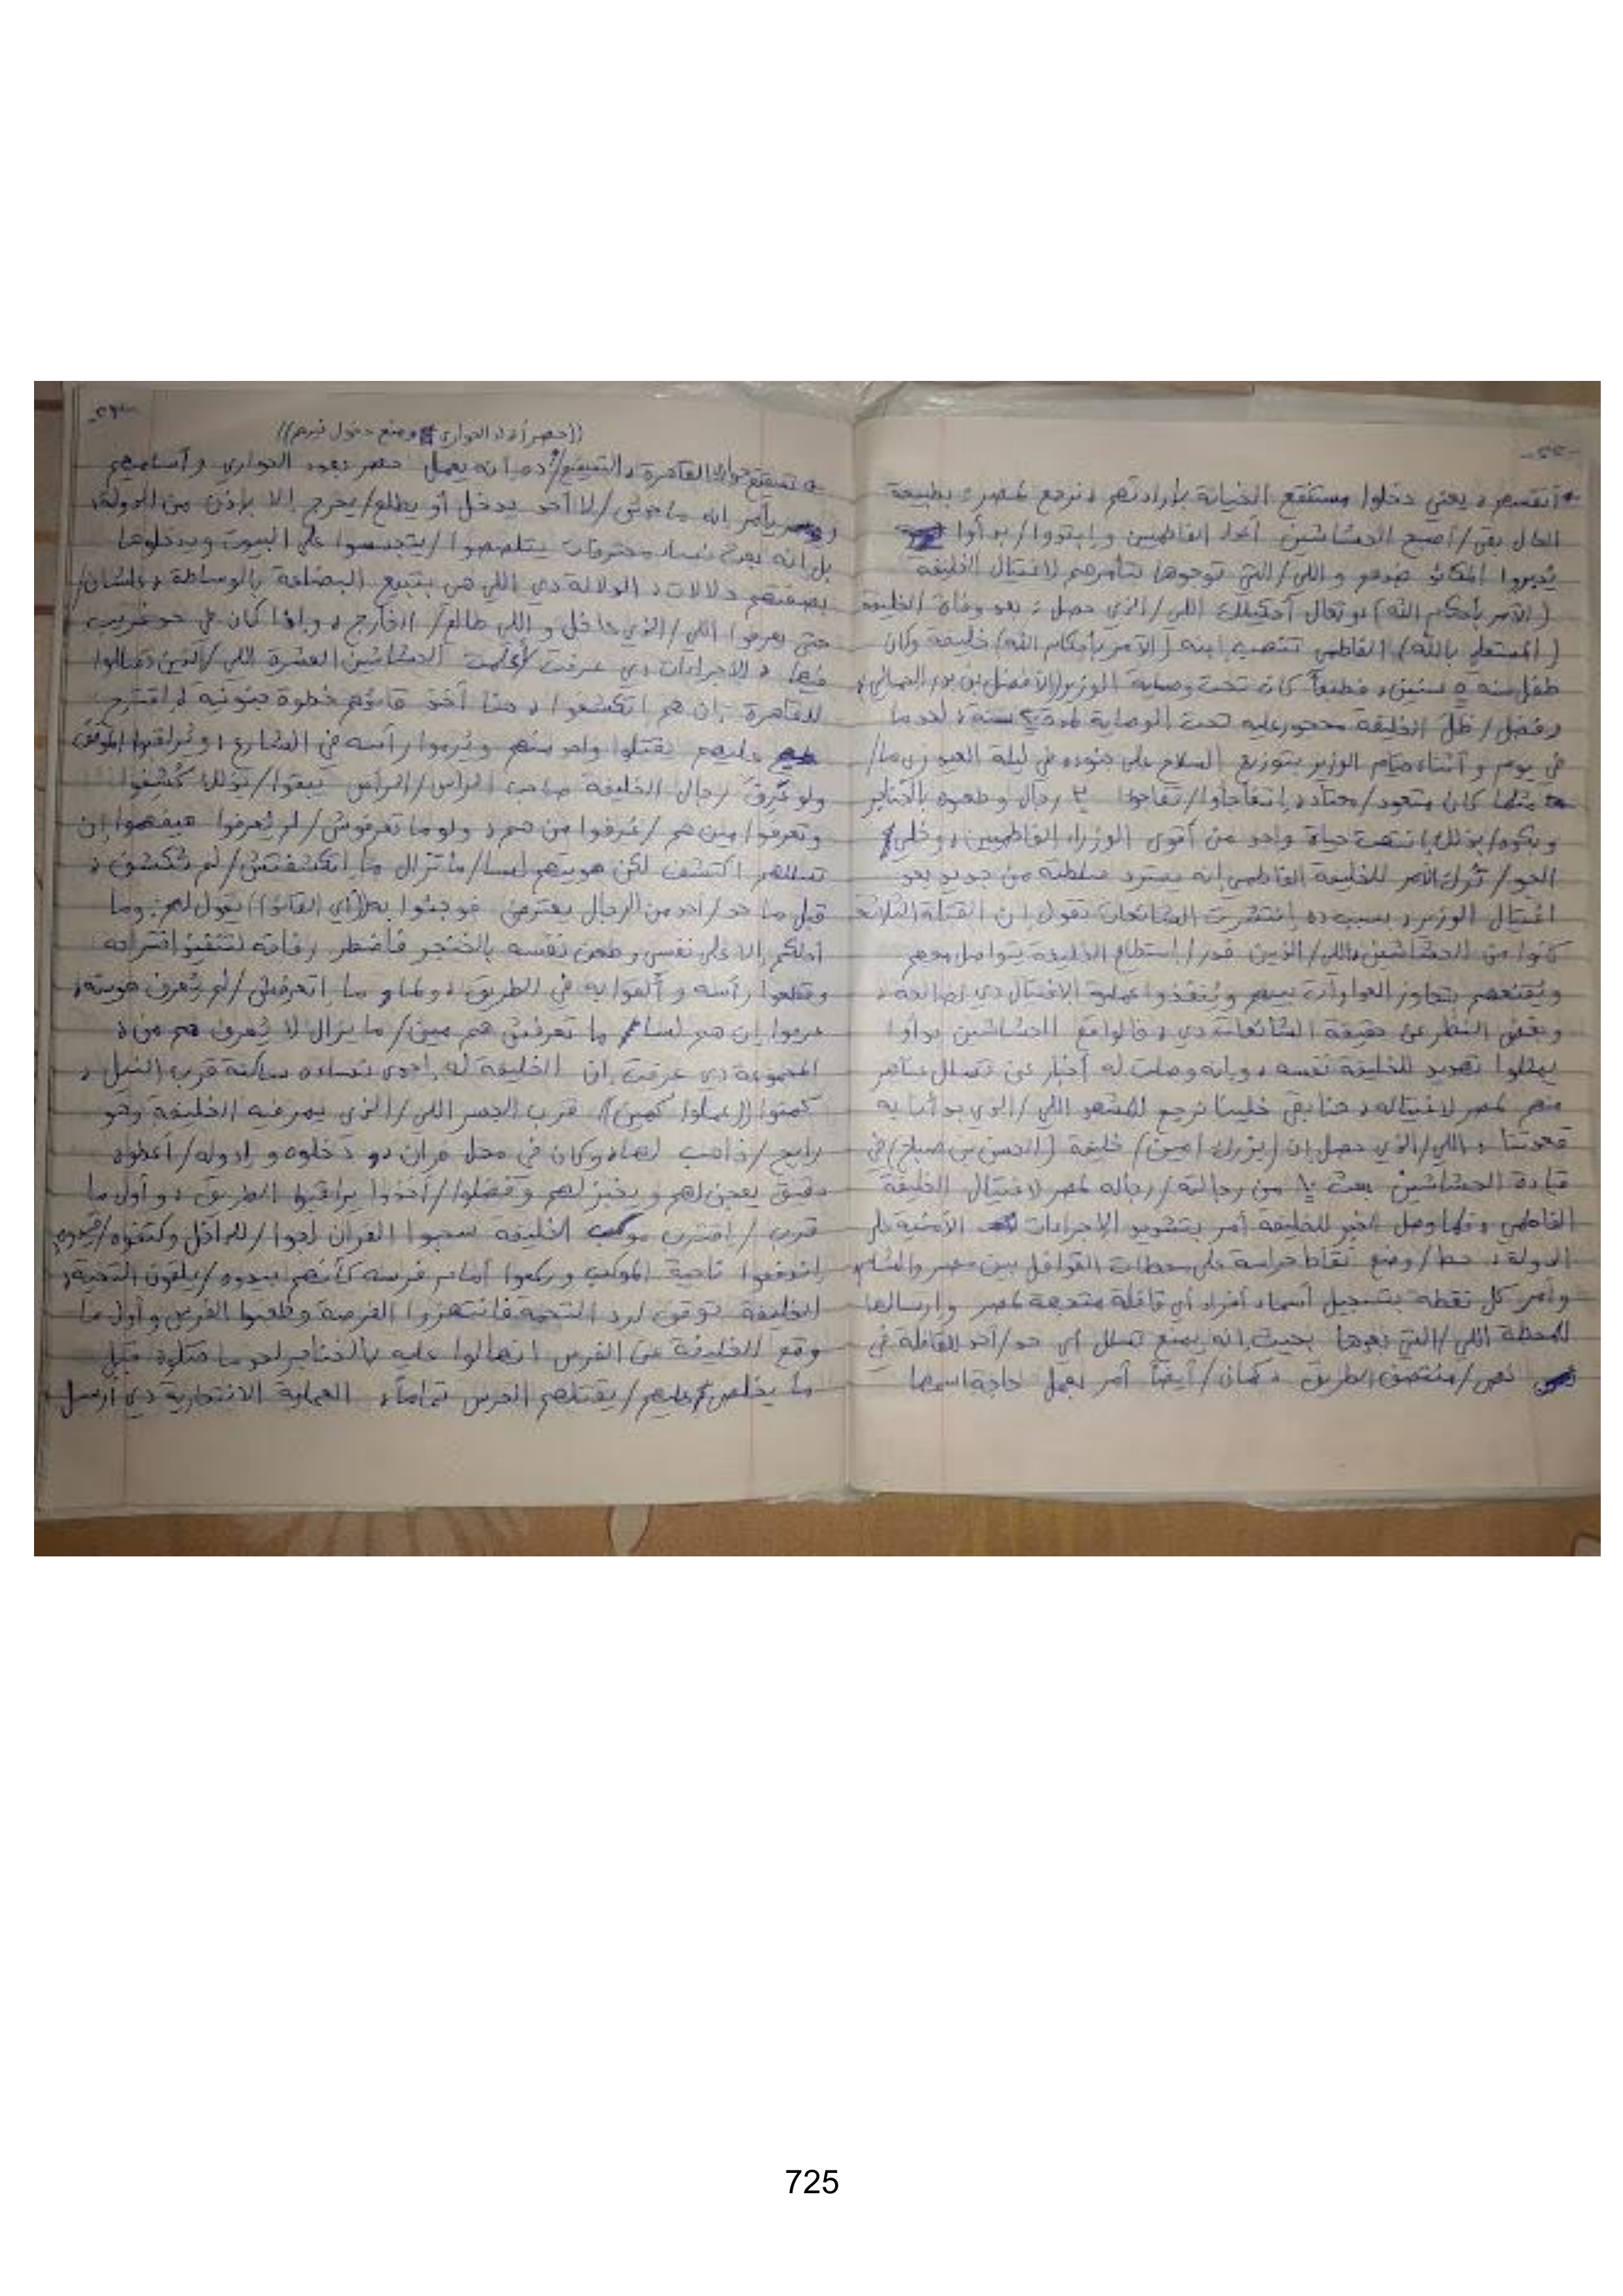 -٢٢-
أنفسهم، يعني دخلوا مستنقع الخيانة بإرادتهم، نرجع لمصر: بطبيعة
الحال بقى/أصبح الحشاشين أعداء الفاطميين وإبتدوا/بدأوا
يُدبروا المكائد ضدهم واللي/التي توجوها بتآمرهم لاغتيال الخليفة
(الآمر بأحكام الله)، وتعال أحكيلك اللي/الذي حصل: بعد وفاة الخليفة
(المستعلي بالله) الفاطمي تنصب ابنه (الآمر بأحكام الله) خليفة وكان
طفل سنه ٥ سنين، فطبعاً كان تحت وصاية الوزير (الأفضل بن بدر الجمالي)،
وفضل/ظلّ الخليفة محجور عليه تحت الوصاية لمدة سنة، لحد ما
في يوم وأثناء قيام الوزير بتوزيع السلاح على جنوده في ليلة العيد زي ما/
مثلما كان متعود/معتاد، إتفاجأوا/تفاجؤوا ٣ رجال وطعنوه بالخناجر
وبكده/بذلك إنتهت حياة واحد من أقوى الوزراء الفاطميين، وخلي
الجو/تُرك الأمر للخليفة الفاطمي إنه يسترد سلطته من جديد بعد
اغتيال الوزير، بسبب ده إنتشرت الشائعات تقول إن القتلة الثلاثة
كانوا من الحشاشين اللي/الذين قدر/إستطاع الخليفة يتواصل معهم
ويُقنعهم بتجاوز العداوات بينهم ويُنفذوا عملية الاغتيال دي لصالحه،
وبغض النظر عن حقيقة الشائعات دي، فالواقع الحشاشين بدأوا
يمثلوا تهديد للخليفة نفسه، وإنه وصلت له أخبار عن تسلل عناصر
منهم لمصر لاغتياله، هنا بقى خلينا نرجع للمشهد اللي/الذي بدأنا به
قعدتنا، اللي/الذي حصل إن (بزرك أميد) خليفة (الحسن بن صباح) في
قيادة الحشاشين بعث ١٠ من رجالته/رجاله لمصر لاغتيال الخليفة
الفاطمي، ولما وصل الخبر للخليفة أمر بتشديد الإجراءات الأمنية في
الدولة، حط/وضع نقاط حراسة على محطات القوافل بين مصر والشام،
وأمر كل نقطة بتسجيل أسماء أفراد أي قافلة متجهة لمصر وإرسالها
للمحطة اللي/التي بعدها بحيث إنه يمنع تسلل أي حد/أحد للقافلة في
نص/منتصف الطريق، كمان/أيضاً أمر بعمل حاجة اسمها
-٢٣-
((حصر أفراد الحواري ومنع دخول غيرهم))
القاهرة، التصقيع/: ده أنه يعمل حصر بعدد الحواري وأساميهم
ويأمر إنه ماحدش/لا أحد يدخل أو يطلع/يخرج إلا بإذن من الدولة،
بل إنه بعث نساء محترفات يتلصصوا/يتجسسوا على البيوت ويدخلوها
بصفتهم دلالات، الدلالة دي اللي هي بتبيع البضاعة بالوساطة، علشان/
حتى يعرفوا اللي/الذي داخل واللي طالع/الخارج، وإذا كان في حد غريب
فيها، الإجراءات دي عرفت/أعلمت الحشاشين العشرة اللي/الذين دخلوا
للقاهرة إن هم اتكشفوا، هنا أخذ قائدهم خطوة جنونية، اقترح
عليهم يقتلوا واحد منهم ويُرموا رأسه في الشارع، ويُراقبوا الموقف
ولو عُرف رجال الخليفة صاحب الراس/الرأس يبقوا/بذلك كُشفوا
وتعرفوا مين هم/عُرفوا من هم، ولو ما تعرفوش/لم يُعرفوا هيفهموا إن
تسللهم اكتشف لكن هويتهم لسا/ما تزال ما اتكشفتش/لم تُكشف،
قبل ما حد/أحد من الرجال يعترض فوجئوا به ((أي القائد)) يقول لهم: وما
أدلكم إلا على نفسي وطعن نفسه بالخنجر فاضطر رفاقه لتنفيذ اقتراحه
وقطعوا رأسه وألقوا به في الطريق، ولما ما اتعرفش/لم تُعرف هويته،
عرفوا إن هم لسا ما تعرفش هم مين/ما يزال لا يُعرف هم من،
المجموعة دي عرفت إن الخليفة له إحدى نساءه ساكنة قرب النيل،
كمنوا ((عملوا كمين)) قرب الجسر اللي/الذي يمر فيه الخليفة وهو
رايح/ذاهب لها، وكان في محل فران، دخلوه وإدوله/أعطوه
دقيق يعجن لهم ويخبز لهم وفضلوا/أخذوا يراقبوا الطريق، وأول ما
قرب/اقترب موكب الخليفة سحبوا الفران لجوا/للداخل وكتفوه/قيدوه
إندفعوا ناحية الموكب وركعوا أمام فرسه كأنهم بيدوه/يلقون التحية،
الخليفة توقف لرد التحية فانتهزوا الفرصة وطعنوا الفرس وأول ما
وقع الخليفة عن الفرس انهالوا عليه بالخناجر لحد ما قتلوه قبل
ما يخلص عليهم/يقتلهم الحرس تماماً، العملية الانتحارية دي أرسل
725